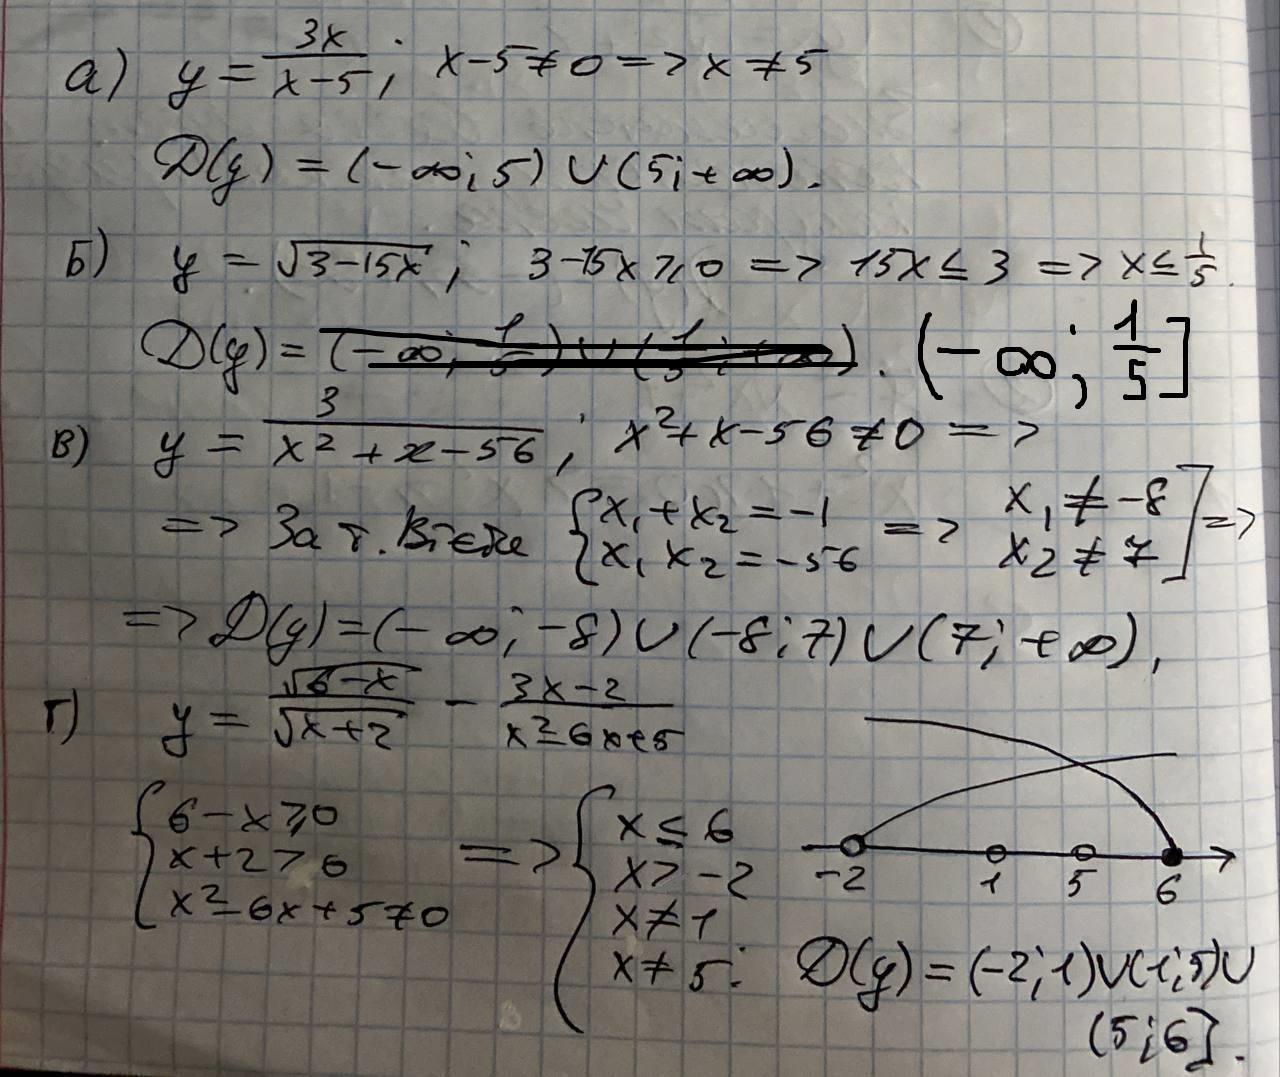 а) y = 3x/(x-5); x-5≠0 => x≠5
D(y) = (-∞; 5) ∪ (5; +∞).
Б) y = √(3-15x); 3-15x ≥ 0 => 15x ≤ 3 => x ≤ 1/5.
D(y) = (-∞; 1/5) ∪ (1/5; +∞). (-∞; 1/5]
в) y = 3/(x²+x-56); x²+x-56≠0 =>
=> За т. Вієта { x₁+x₂=-1 x₁x₂=-56 => x₁≠-8 x₂≠7 ] =>
=> D(y)=(-∞; -8) ∪ (-8; 7) ∪ (7; +∞),
г) y = √(6-x)/√(x+2) - (3x-2)/(x²-6x+5)
{ 6-x ≥ 0
x+2 > 0
x²-6x+5≠0
=> { x ≤ 6
x > -2
x ≠ 1
x ≠ 5.
-2 1 5 6
D(y) = (-2; 1)∪(1; 5)∪
(5; 6].